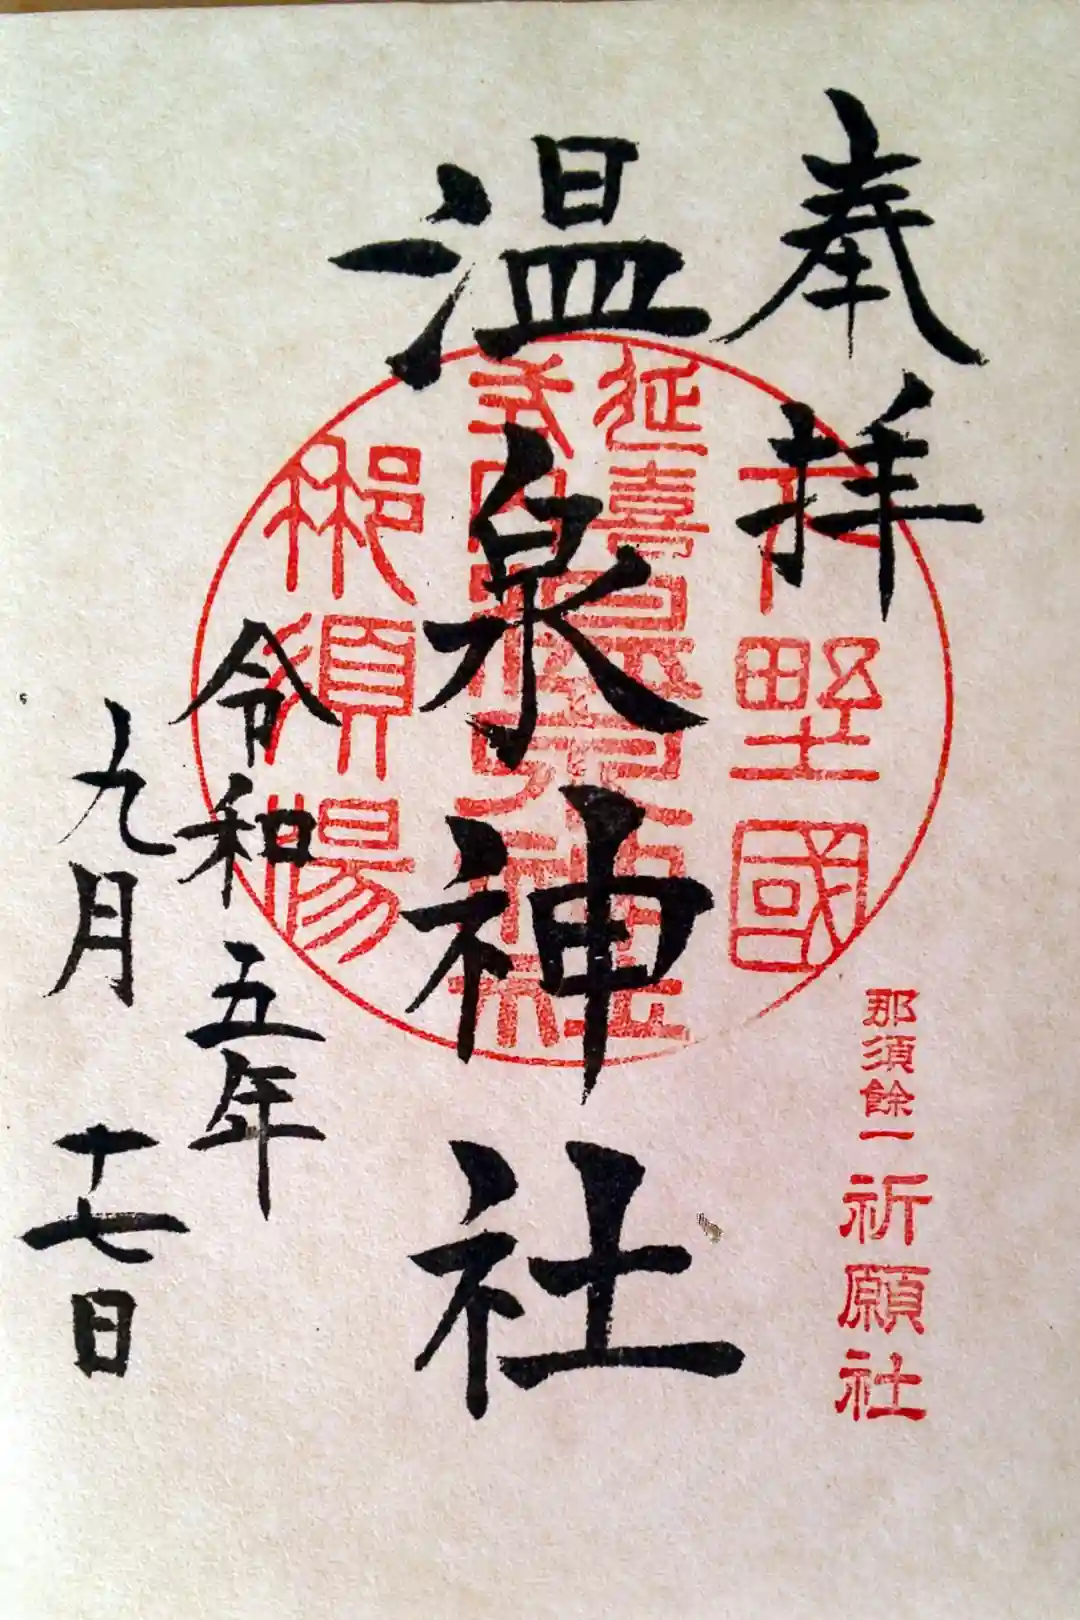 奉拝
下野國
那須餘一祈願社
延喜
式内
温泉神社
那須湯
令和五年
九月十七日